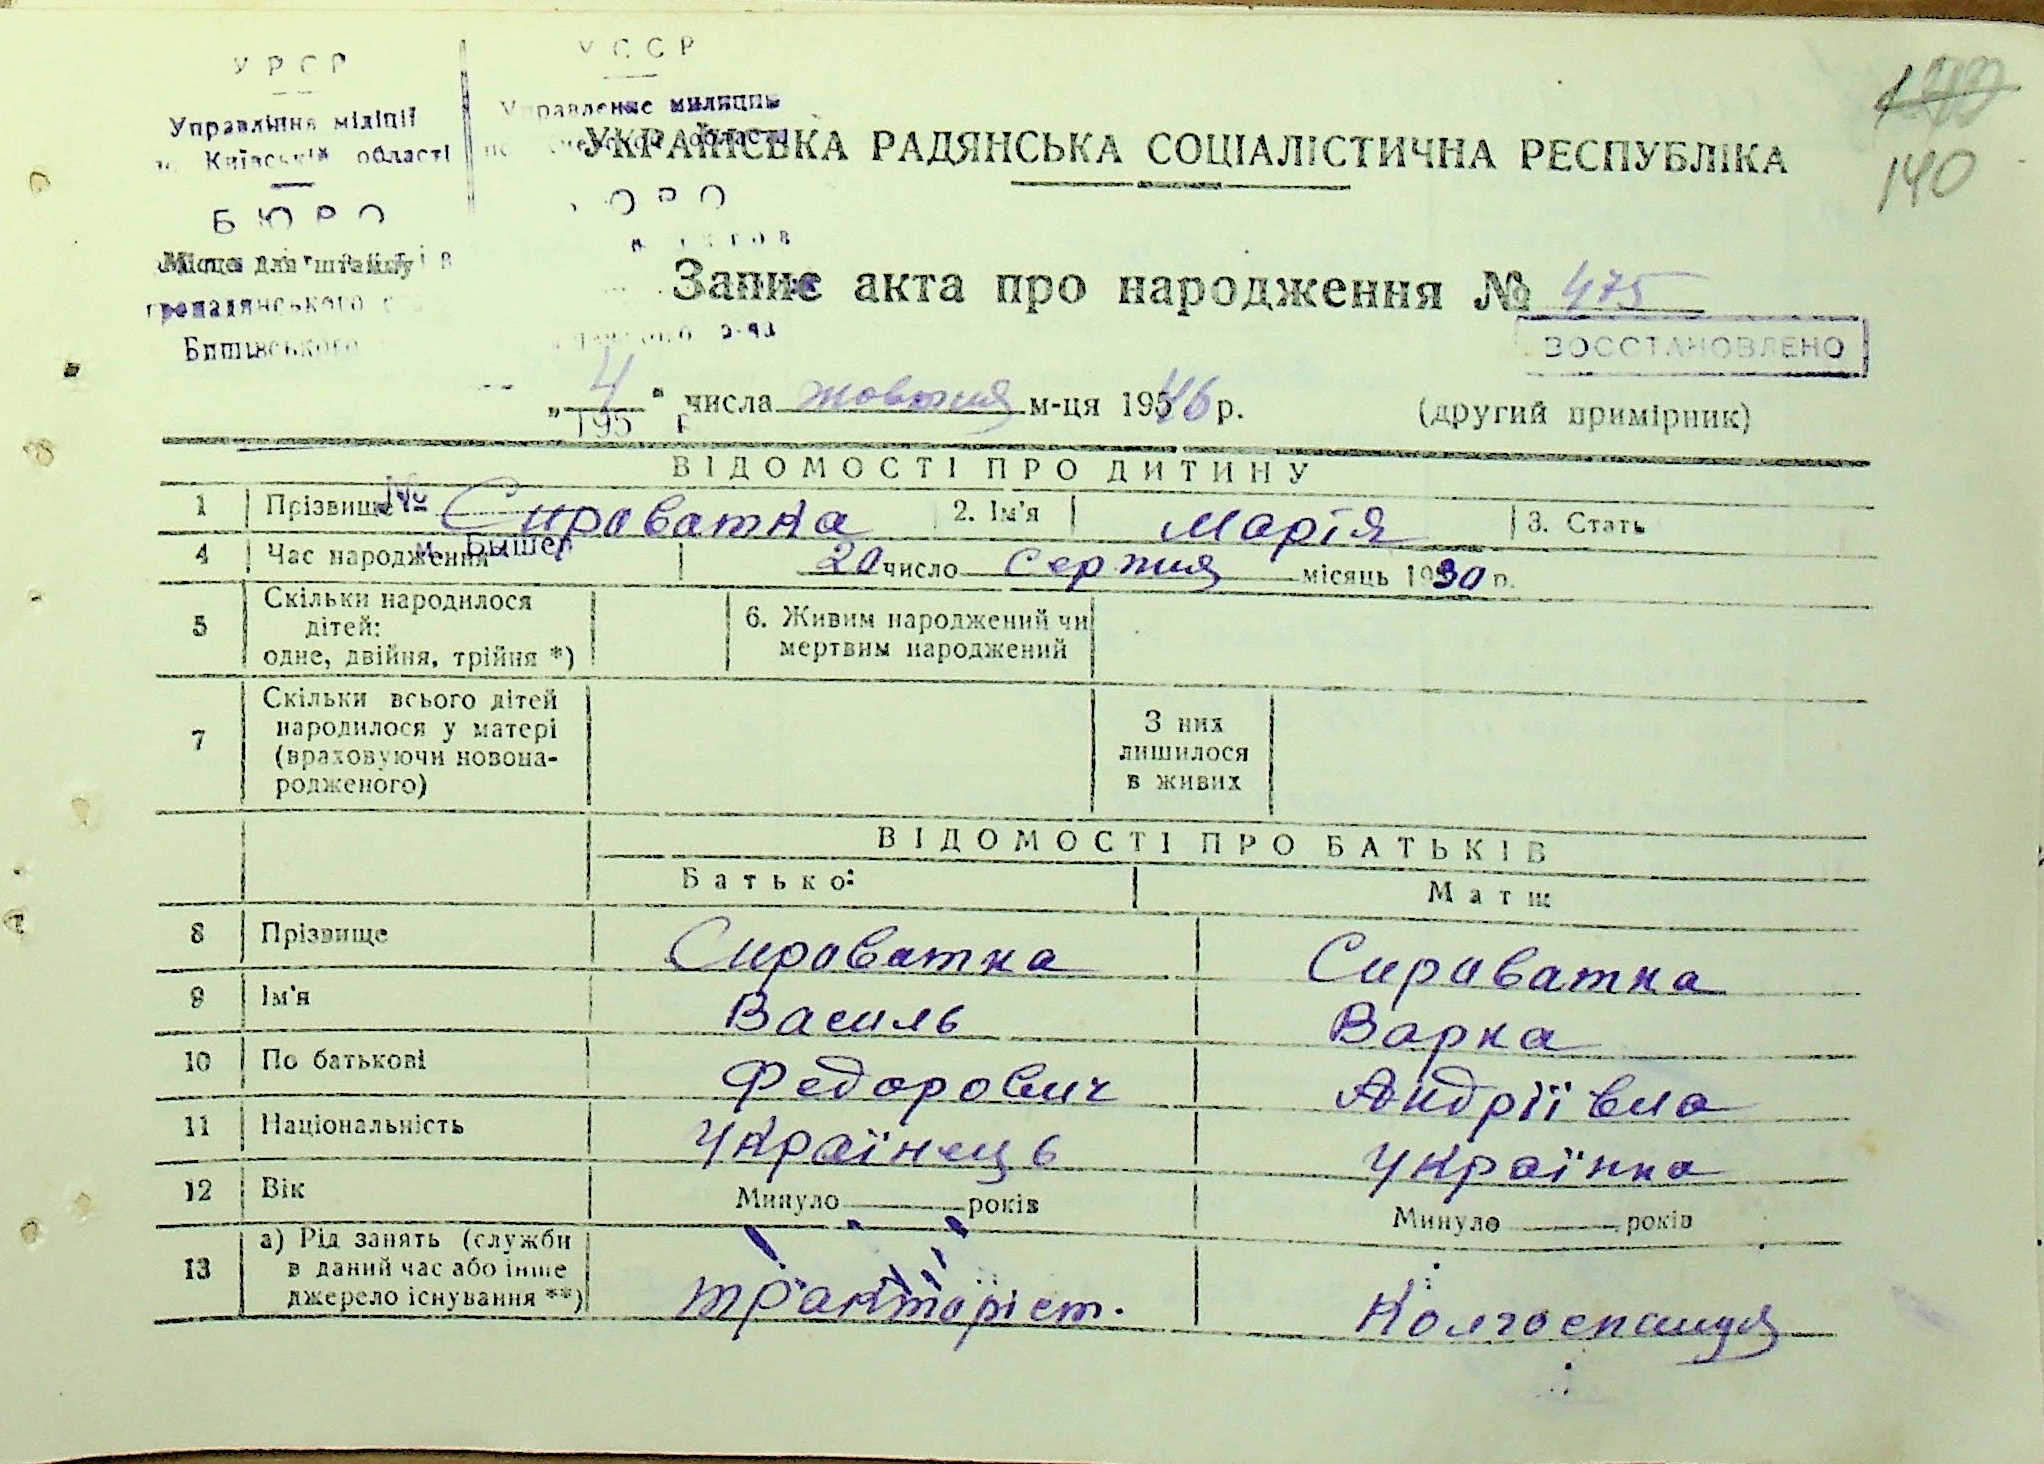 УРСР
Управління міліції
Київській області
БЮРО
Місце для штампу
громадянського
Бишівського
УССР
Управление милиции
області
140
УКРАЇНСЬКА РАДЯНСЬКА СОЦІАЛІСТИЧНА РЕСПУБЛІКА
Запис акта про народження № 475
ВОССТАНОВЛЕНО
„ 4 “ числа жовтня м-ця 1946 р.
195 р
(другий примірник)
ВІДОМОСТІ ПРО ДИТИНУ
1 Прізвище Сироватка 2. Ім'я Марія 3. Стать
№
м. Бышев
4 Час народження 20 число серпня місяць 1930 р.
5 Скільки народилося дітей: одне, двійня, трійня *)
6. Живим народжений чи мертвим народжений
7 Скільки всього дітей народилося у матері (враховуючи новона-родженого)
З них лишилося в живих
ВІДОМОСТІ ПРО БАТЬКІВ
Батько: Мати:
8 Прізвище Сироватка Сироватка
9 Ім'я Василь Варка
10 По батькові Федорович Андріївна
11 Національність Українець Українка
12 Вік Минуло років Минуло років
13 а) Рід занять (служби в даний час або інше джерело існування **) тракторіст. Колгоспниця